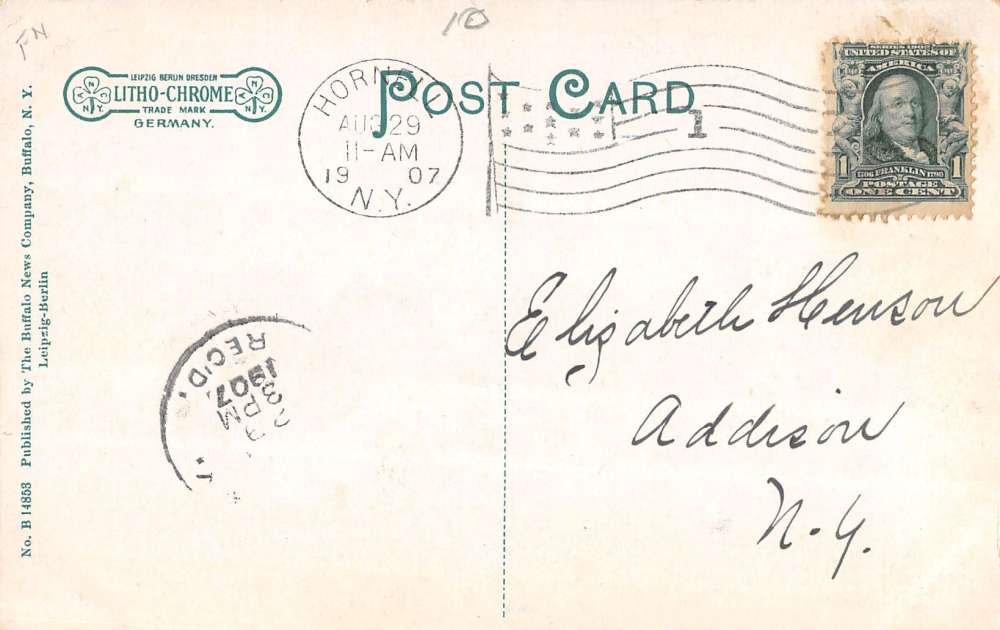 FN
10
LEIPZIG BERLIN DRESDEN
LITHO-CHROME
TRADE MARK
GERMANY.
N. Y.
POST CARD
HORNELL
AUG 29
11-AM
19 07
N.Y.
1
SERIES 1902
UNITED STATES OF
AMERICA
1706 FRANKLIN 1790
POSTAGE
1 1
ONE CENT
No. B 14853 Published by The Buffalo News Company, Buffalo, N. Y.
Leipzig-Berlin
REC'D.
1907
3 PM
Elizabeth Henson
Addison
N.Y.